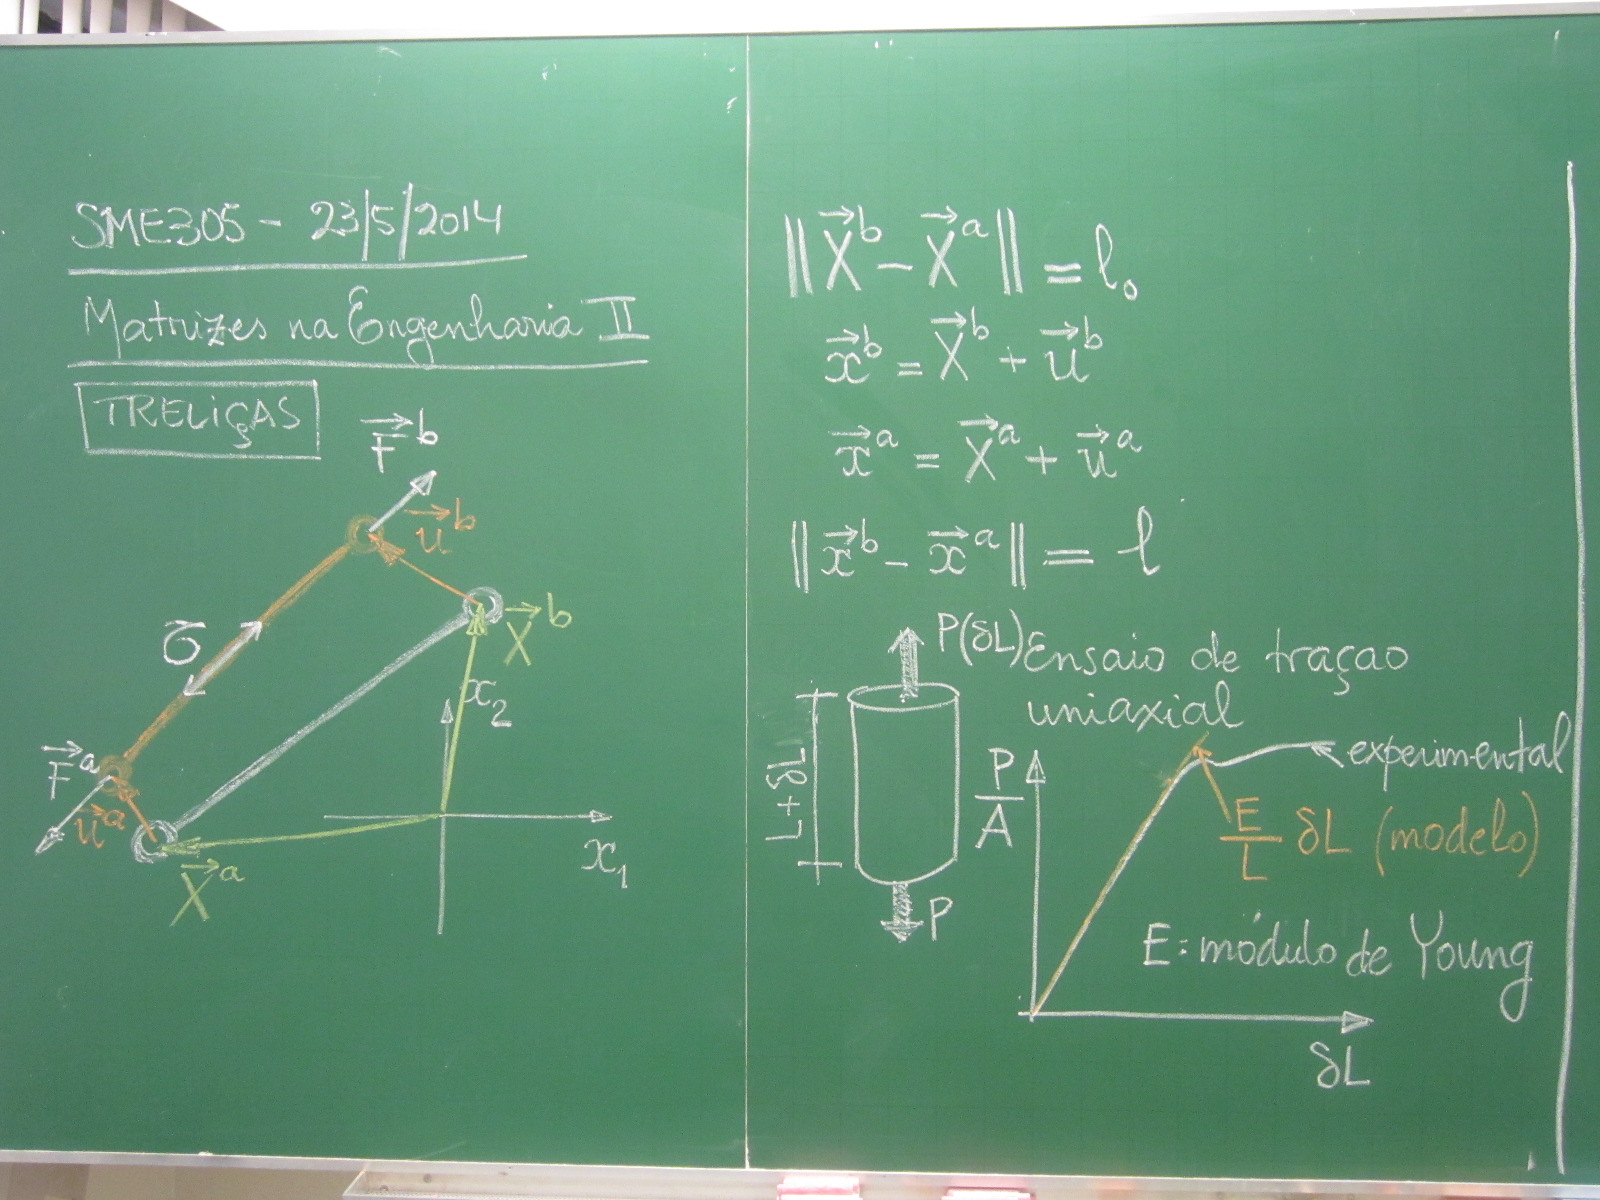 SME305 - 23/5/2014
Matrizes na Engenharia II
TRELIÇAS
F⃗ᵇ
u⃗ᵇ
X⃗ᵇ
σ
x₂
F⃗ᵃ
u⃗ᵃ
X⃗ᵃ
x₁
‖X⃗ᵇ - X⃗ᵃ‖ = l₀
x⃗ᵇ = X⃗ᵇ + u⃗ᵇ
x⃗ᵃ = X⃗ᵃ + u⃗ᵃ
‖x⃗ᵇ - x⃗ᵃ‖ = l
P(δL)
Ensaio de traçao
uniaxial
L+δL
P
P/A
experimental
E/L δL (modelo)
E: módulo de Young
δL